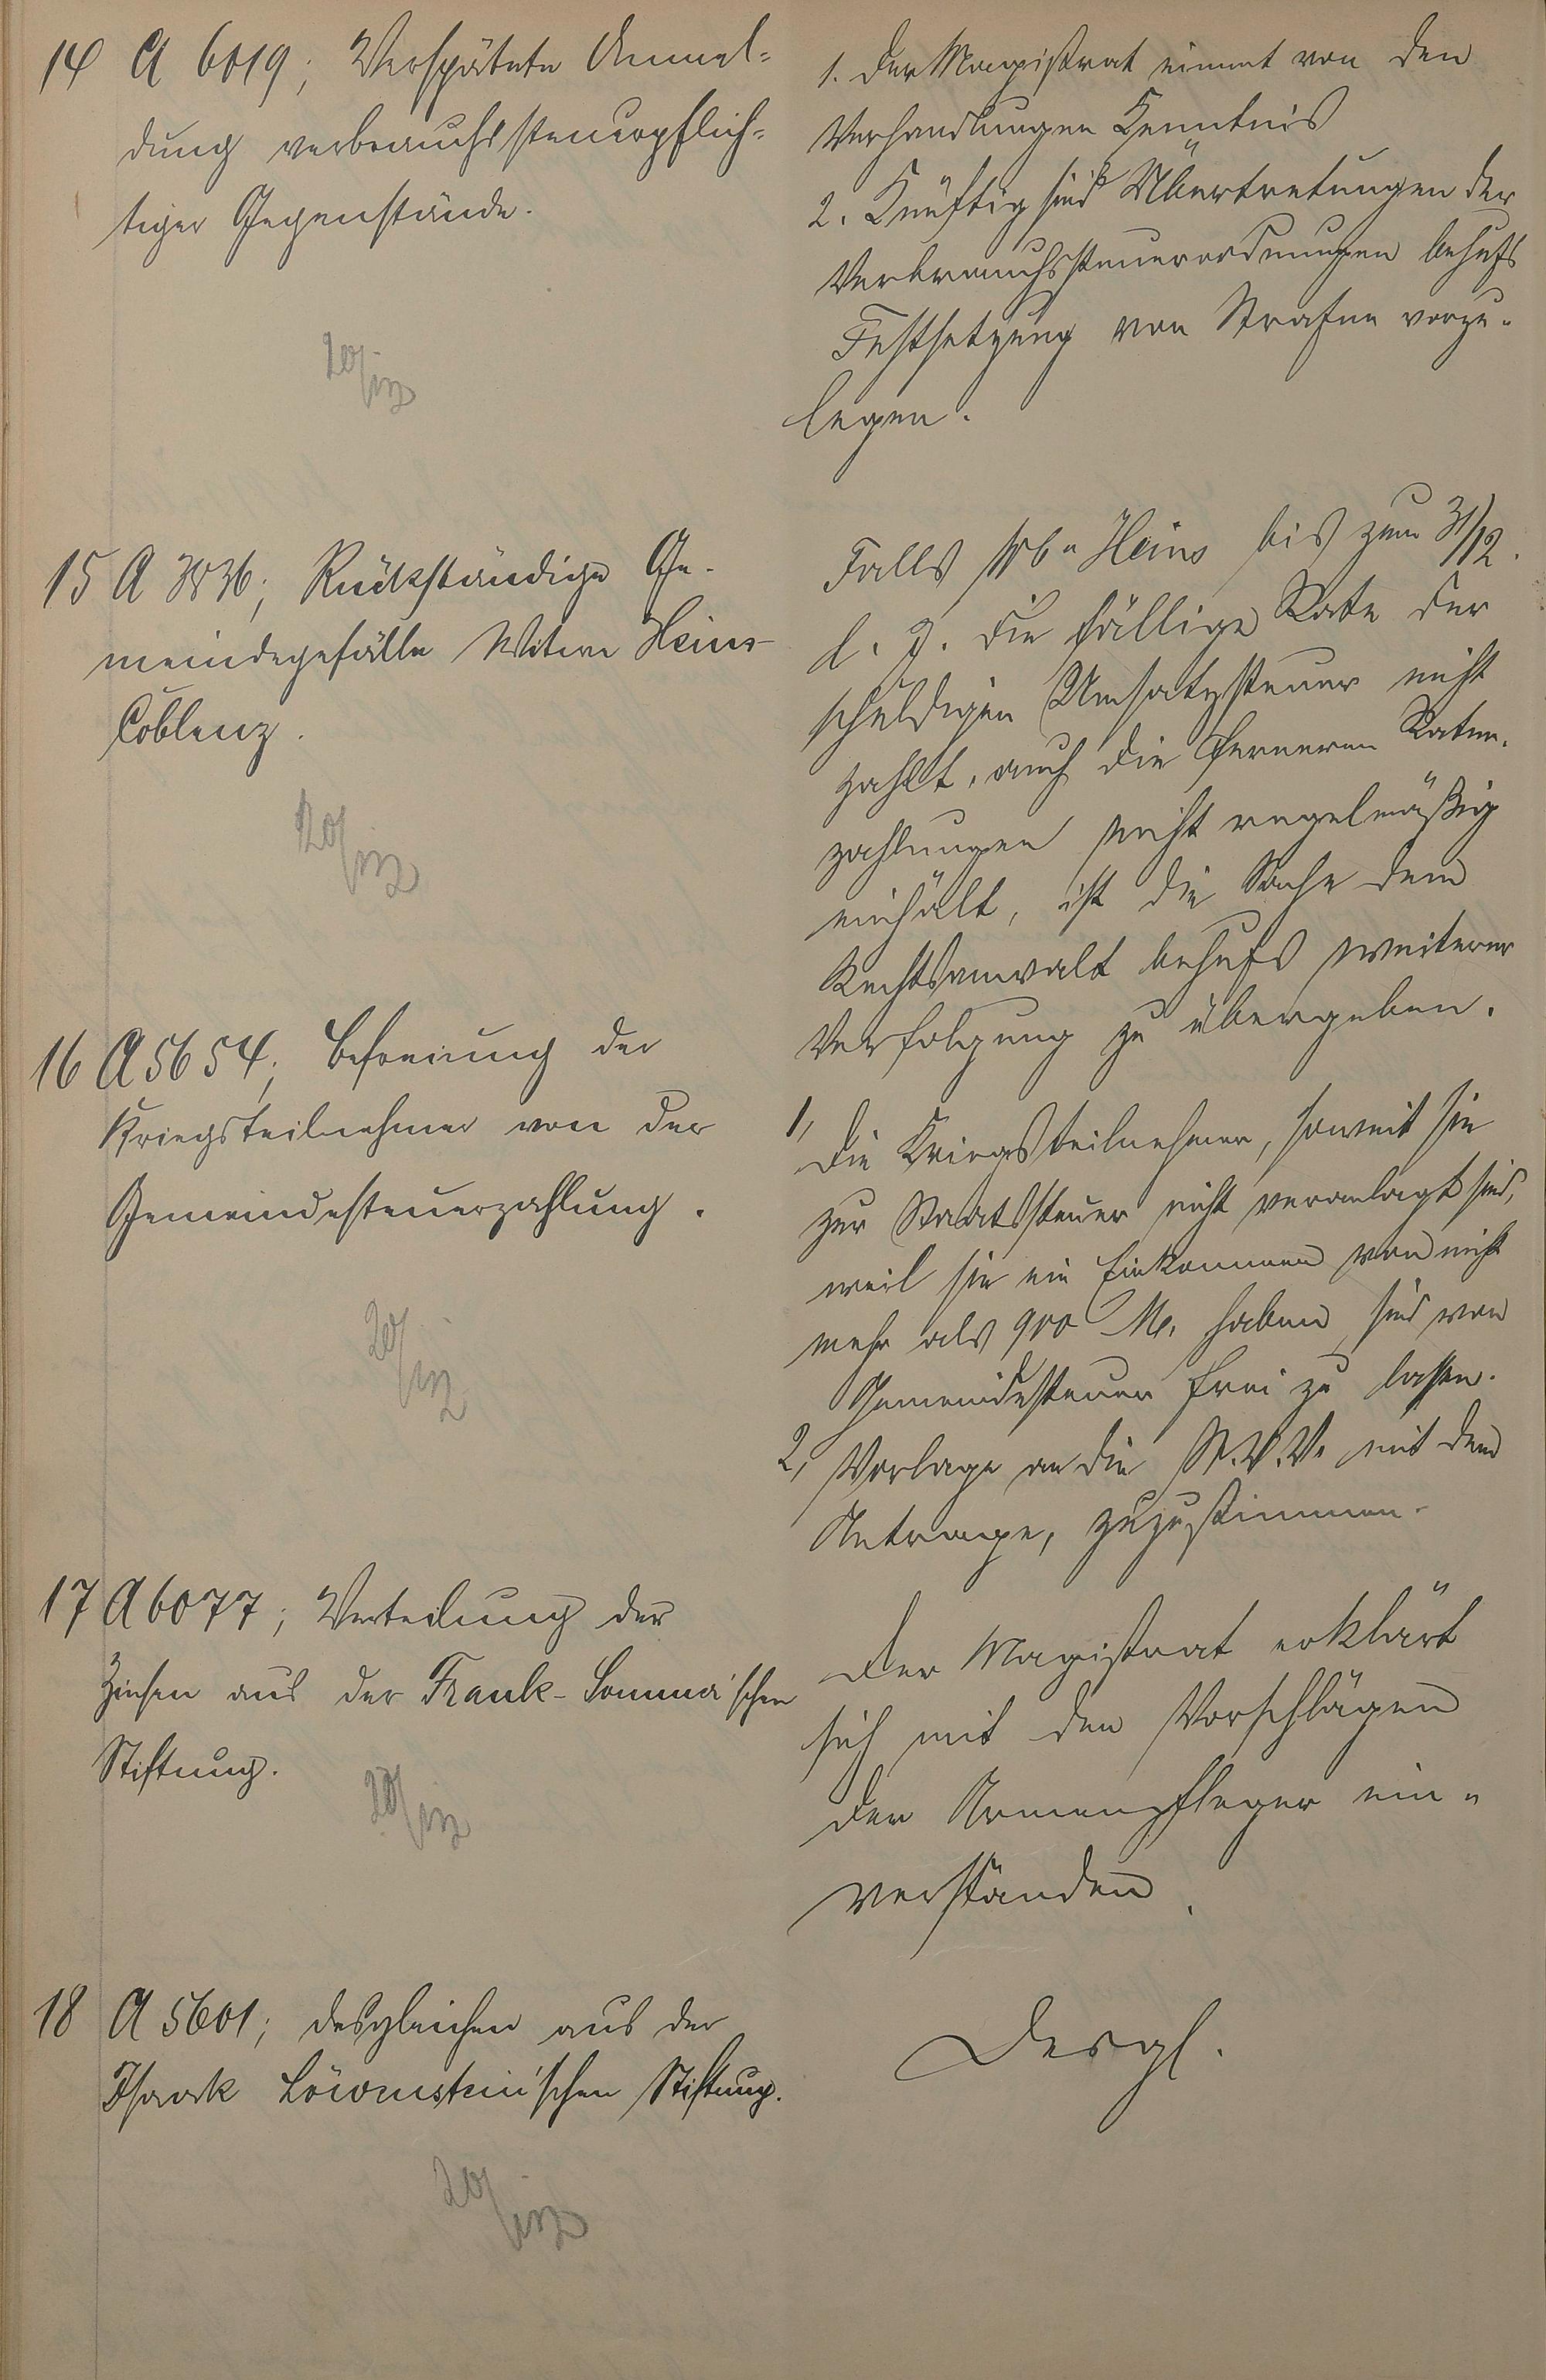 14 A 6019; Verspätete Anmel-
dung verbrauchssteuerpflich-
tiger Gegenstände.
1. Der Magistrat nimmt von den
Verhandlungen Kenntnis
2. Künftig sind Übertretungen der
Verbrauchssteuerordnungen behufs
Festsetzung von Strafen vorzu-
legen.
15 A 3836; Rückständige Ge-
meindegefälle Witwe Heins-
Coblenz.
Falls Wb. Heins bis zum 31/12.
l. J. die fällige Rate der
schuldigen Umsatzsteuer nicht
zahlt, auch die ferneren Raten-
zahlungen nicht regelmäßig
einhält, ist die Sache dem
Rechtsanwalt behufs weiterer
Verfolgung zu übergeben.
16 A 5654; Befreiung der
Kriegsteilnehmer von der
Gemeindesteuerzahlung.
1, Die Kriegsteilnehmer, soweit sie
zur Staatssteuer nicht veranlagt sind,
weil sie ein Einkommen von nicht
mehr als 900 M. haben, sind von
Gemeindesteuer frei zu lassen.
2, Vorlage an die St.V.V. mit dem
Antrage, zuzustimmen.
17 A 6077; Verteilung der
Zinsen aus der Frank-Somma'schen
Stiftung.
Der Magistrat erklärt
sich mit den Vorschlägen
der Armenpfleger ein-
verstanden.
18 A 5601; desgleichen aus der
Isaak Löwenstein'schen Stiftung.
Desgl.